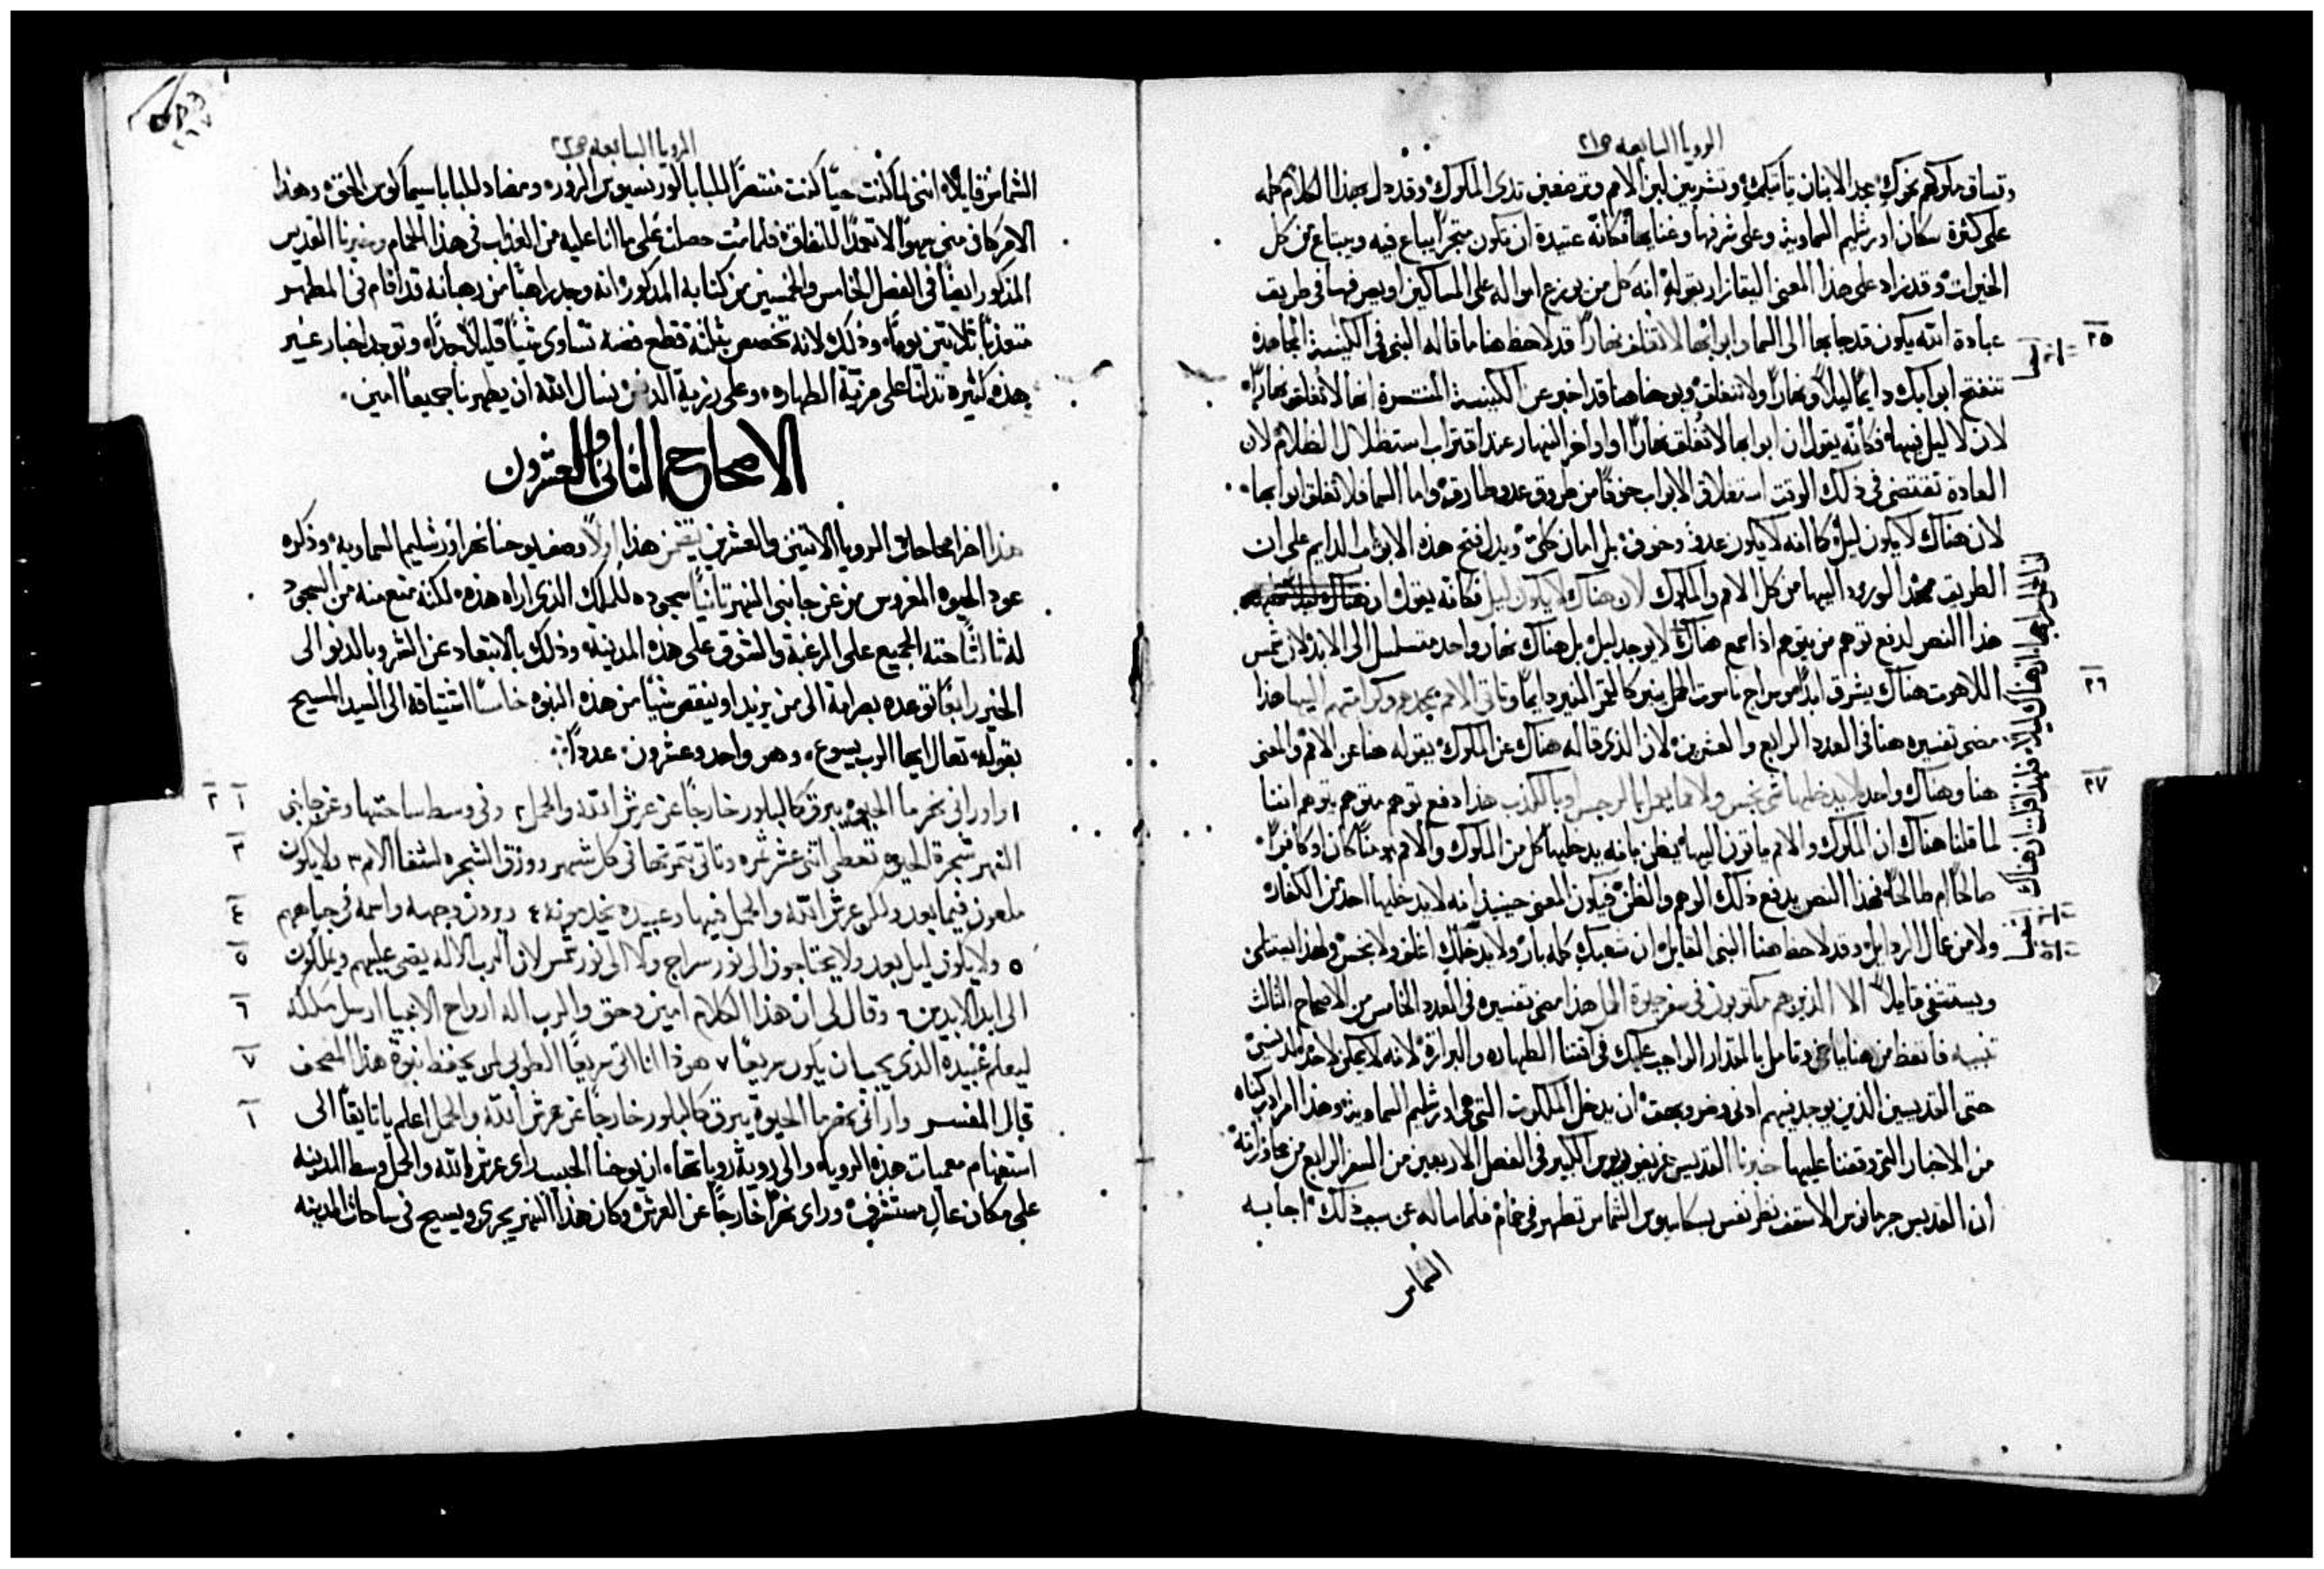 الرويا السابعه ص٢١
وتساق ملوكهم نحوك مجد الابنان ياتيكِ وتشربين لبن الامم وترضعين ثدى الملوك وقد دل بهذا الكلام كله
على كثرة سكان اورشليم السماوية وعلى شرفها وغنايها فكانه عتيدة ان تكون متجرًا يباع فيه ويبتاع من كل
الخيرات وقد زاد على هذا المعنى بقوله انه كل من يوزع امواله على المساكين او يصرفها فى طريق
عبادة الله يكون قد جا بها الى السما وابوابها لا تغلق نهارًا قد لاحظ هنا ما قاله النبى فى الكنيسة المجاهده
٢٥
تنفتح ابوابك دايمًا ليلاً ونهارًا ولا تنغلق ويوحنا هنا قد اخبر عن الكنيسة المنتصرة انها لا تغلق نهارًا
لان لا ليل فيها فكانه يقول ان ابوابها لا تُغلق نهارًا او اواخر النهار عند اقتراب استظلال الظلام لان
العادة تقتضى فى ذلك الوقت استغلاق الابواب خوفًا من طروق عدو طارق واما السما فلا تغلق ابوابها
لان هناك لا يكون ليل كما انه لا يكون عدو وخوف بل امان كلى ويدل فتح هذه الابواب الدايم على ان
الطريق ممهد الورود اليها من كل الامم والملوك لان هناك لا يكون ليل فكانه يقول ان هناك
هذا النص لدفع توهم من يتوهم اذا سمع هناك لا يوجد ليل بل هناك نهار واحد متسلسل الى الابد لان شمس
اللاهوت هناك يشرق ابدًا وسراج ناسوت الحمل ينير كالقمر النير دايمًا وتاتى الامم بمجدهم وكرامتهم اليها هذا
٢٦
مضى تفسيره هنا فى العدد الرابع والعشرين لان الذى قاله هناك عن الملوك يقوله هنا عن الامم والمعنى
هنا وهناك واحد لا يدخلها شى نجس ولا مما يعمل الرجس او بالكذب هذا دفع توهم متوهم يتوهم اننا
٢٧
لما قلنا هناك ان الملوك والامم ياتون اليها يظن بانه يدخلها كل من الملوك والامم مومنًا كان او كافرًا
صالحًا ام طالحًا فهذا النص يدفع ذلك الوهم والظن فيكون المعنى حينيذٍ انه لا يدخلها احد من الكفار
ولا من عمال الرذايل وقد لاحظ هنا النبى القايل ان شعبكِ كله بار ولا يدخلكِ اغلف ولا نجس ولهذا يستتلى
ويستثنى قايلاً الا الذين هم مكتوبون فى سفر حيوة الحمل هذا مضى تفسيره فى العدد الخامس من الاصحاح الثالث
تنبيه فاتعظ من هنا يا اخى وتامل بالمقدار الواجب عليك فى اقتنا الطهاره والبرارة لانه لا يمكن لاحد
حتى القديسين الذين يوجد فيهم ادنى وضر وبحق ان يدخل الملكوت التى هى اورشليم السماوية وهذا
من الاخبار التى وقفنا عليها خبرنا القديس غريغوريوس الكبير فى الفصل الاربعين من السفر الرابع من محاوراته
ان القديس جرمانوس الاسقف نظر نفس بسكاسيوس الشماس تطهر فى حمام فلما ساله عن سبب ذلك اجابه
الشماس
الرويا السابعه ص٢٢
الشماس قايلاً اننى لما كنت حيًا كنت منتصرًا للبابا لورنسيوس الزور ومضاد للبابا سيماكوس الحق وهذا
الامر كان منى سهوًا لا تعمدًا للنفاق فلما مت حصلت على ما انا عليه من العذاب فى هذا الحمام وخبرنا القديس
المذكور ايضًا فى الفصل الخامس والخمسين من كتابه المذكور انه وجد راهبًا من رهبانه قد اقام فى المطهر
متعذبًا ثلاثين يومًا وذلك لانه تخصص بثلثة قطع فضة تساوى شيًا قليلاً جدًا وتوجد اخبار غير
هذه كثيره تدلنا على مزية الطهاره وعلى رزية الدنس نسال الله ان يطهرنا جميعًا امين
الاصحاح الثانى والعشرون
هذا اخر اصحاحات الرويا الاثنين والعشرين يتضمن هذا اولاً وصف يوحنا نهر اورشليم السماوية وذكره
عود الحيوه المغروس من عن جانبى النهر ثانيًا سجوده للملاك الذى اراه هذه لكنه منع منه من السجود
له ثالثًا حثه الجميع على الرغبة والشوق على هذه المدينة وذلك بالابتعاد عن الشر وبالدنو الى
الخير رابعًا توعده بصرامة الى من يزيد او ينقص شيًا من هذه النبوه خامسًا اشتياقه الى السيد المسيح
بقوله تعال ايها الرب يسوع وهو واحد وعشرون عددًا
١ وارانى نهر ما الحيوة يبرق كالبلور خارجًا عن عرش الله والحمل ٢ وفى وسط ساحتها وعن جانبى
١ ٢
النهر شجرة الحيوة تعطى اثنى عشر ثمره وتاتى بثمرتها فى كل شهر وورق الشجره لشفا الامم ٣ ولا يكون
٣
ملعون فيما بعد ولكن عرش الله والحمل فيها وعبيده يخدمونه ٤ ويرون وجهه واسمه فى جباههم
٤
٥ ولا يكون ليل بعد ولا يحتاجون الى نور سراج ولا الى نور شمس لان الرب الاله يضى عليهم ويملكون
٥
الى ابد الابدين ٦ وقال لى ان هذا الكلام امين وحق والرب اله ارواح الانبيا ارسل ملاكه
٦
ليعلم عبيده الذى يجب ان يكون سريعًا ٧ هوذا انا اتى سريعًا الطوبى لمن يحفظ نبوة هذا المصحف
٧
قال المفسر وارانى نهر ما الحيوة يبرق كالبلور خارجًا عن عرش الله والحمل اعلم يا تايقًا الى
١
استفهام معميات هذه الرويا والى روية روياتها ان يوحنا الحبيب راى عرش الله والحمل وسط المدينه
على مكان عالٍ مستشرف وراى نهرًا خارجًا عن العرش وكان هذا النهر يجرى ويسيح فى ساحات المدينه